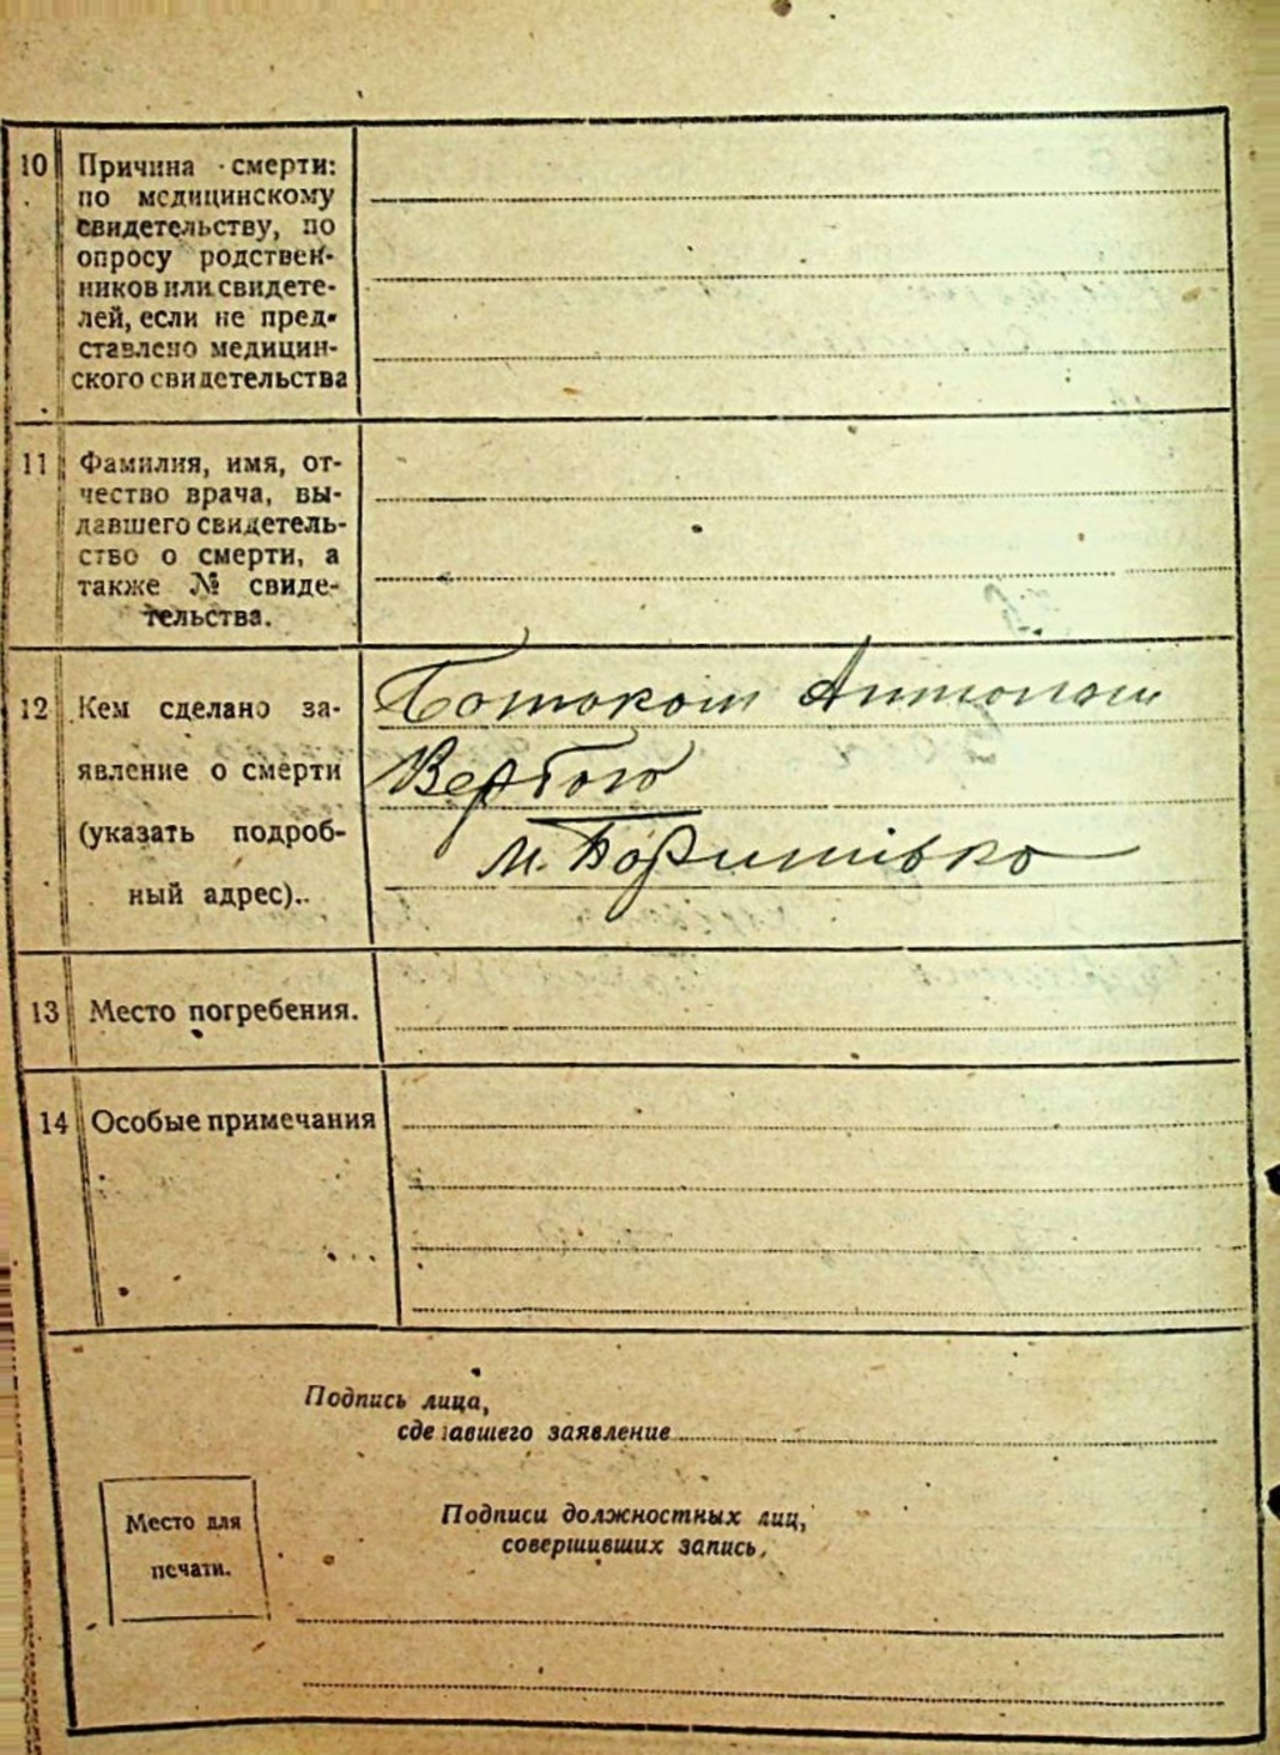 10 Причина смерти:
по медицинскому
свидетельству, по
опросу родствен-
ников или свидете-
лей, если не пред-
ставлено медицин-
ского свидетельства
11 Фамилия, имя, от-
чество врача, вы-
давшего свидетель-
ство о смерти, а
также № свиде-
тельства.
12 Кем сделано за-
явление о смерти
(указать подроб-
ный адрес)..
Антоном
Вербою
м.
13 Место погребения.
14 Особые примечания
Подпись лица,
сделавшего заявление
Место для
печати.
Подписи должностных лиц,
совершивших запись.